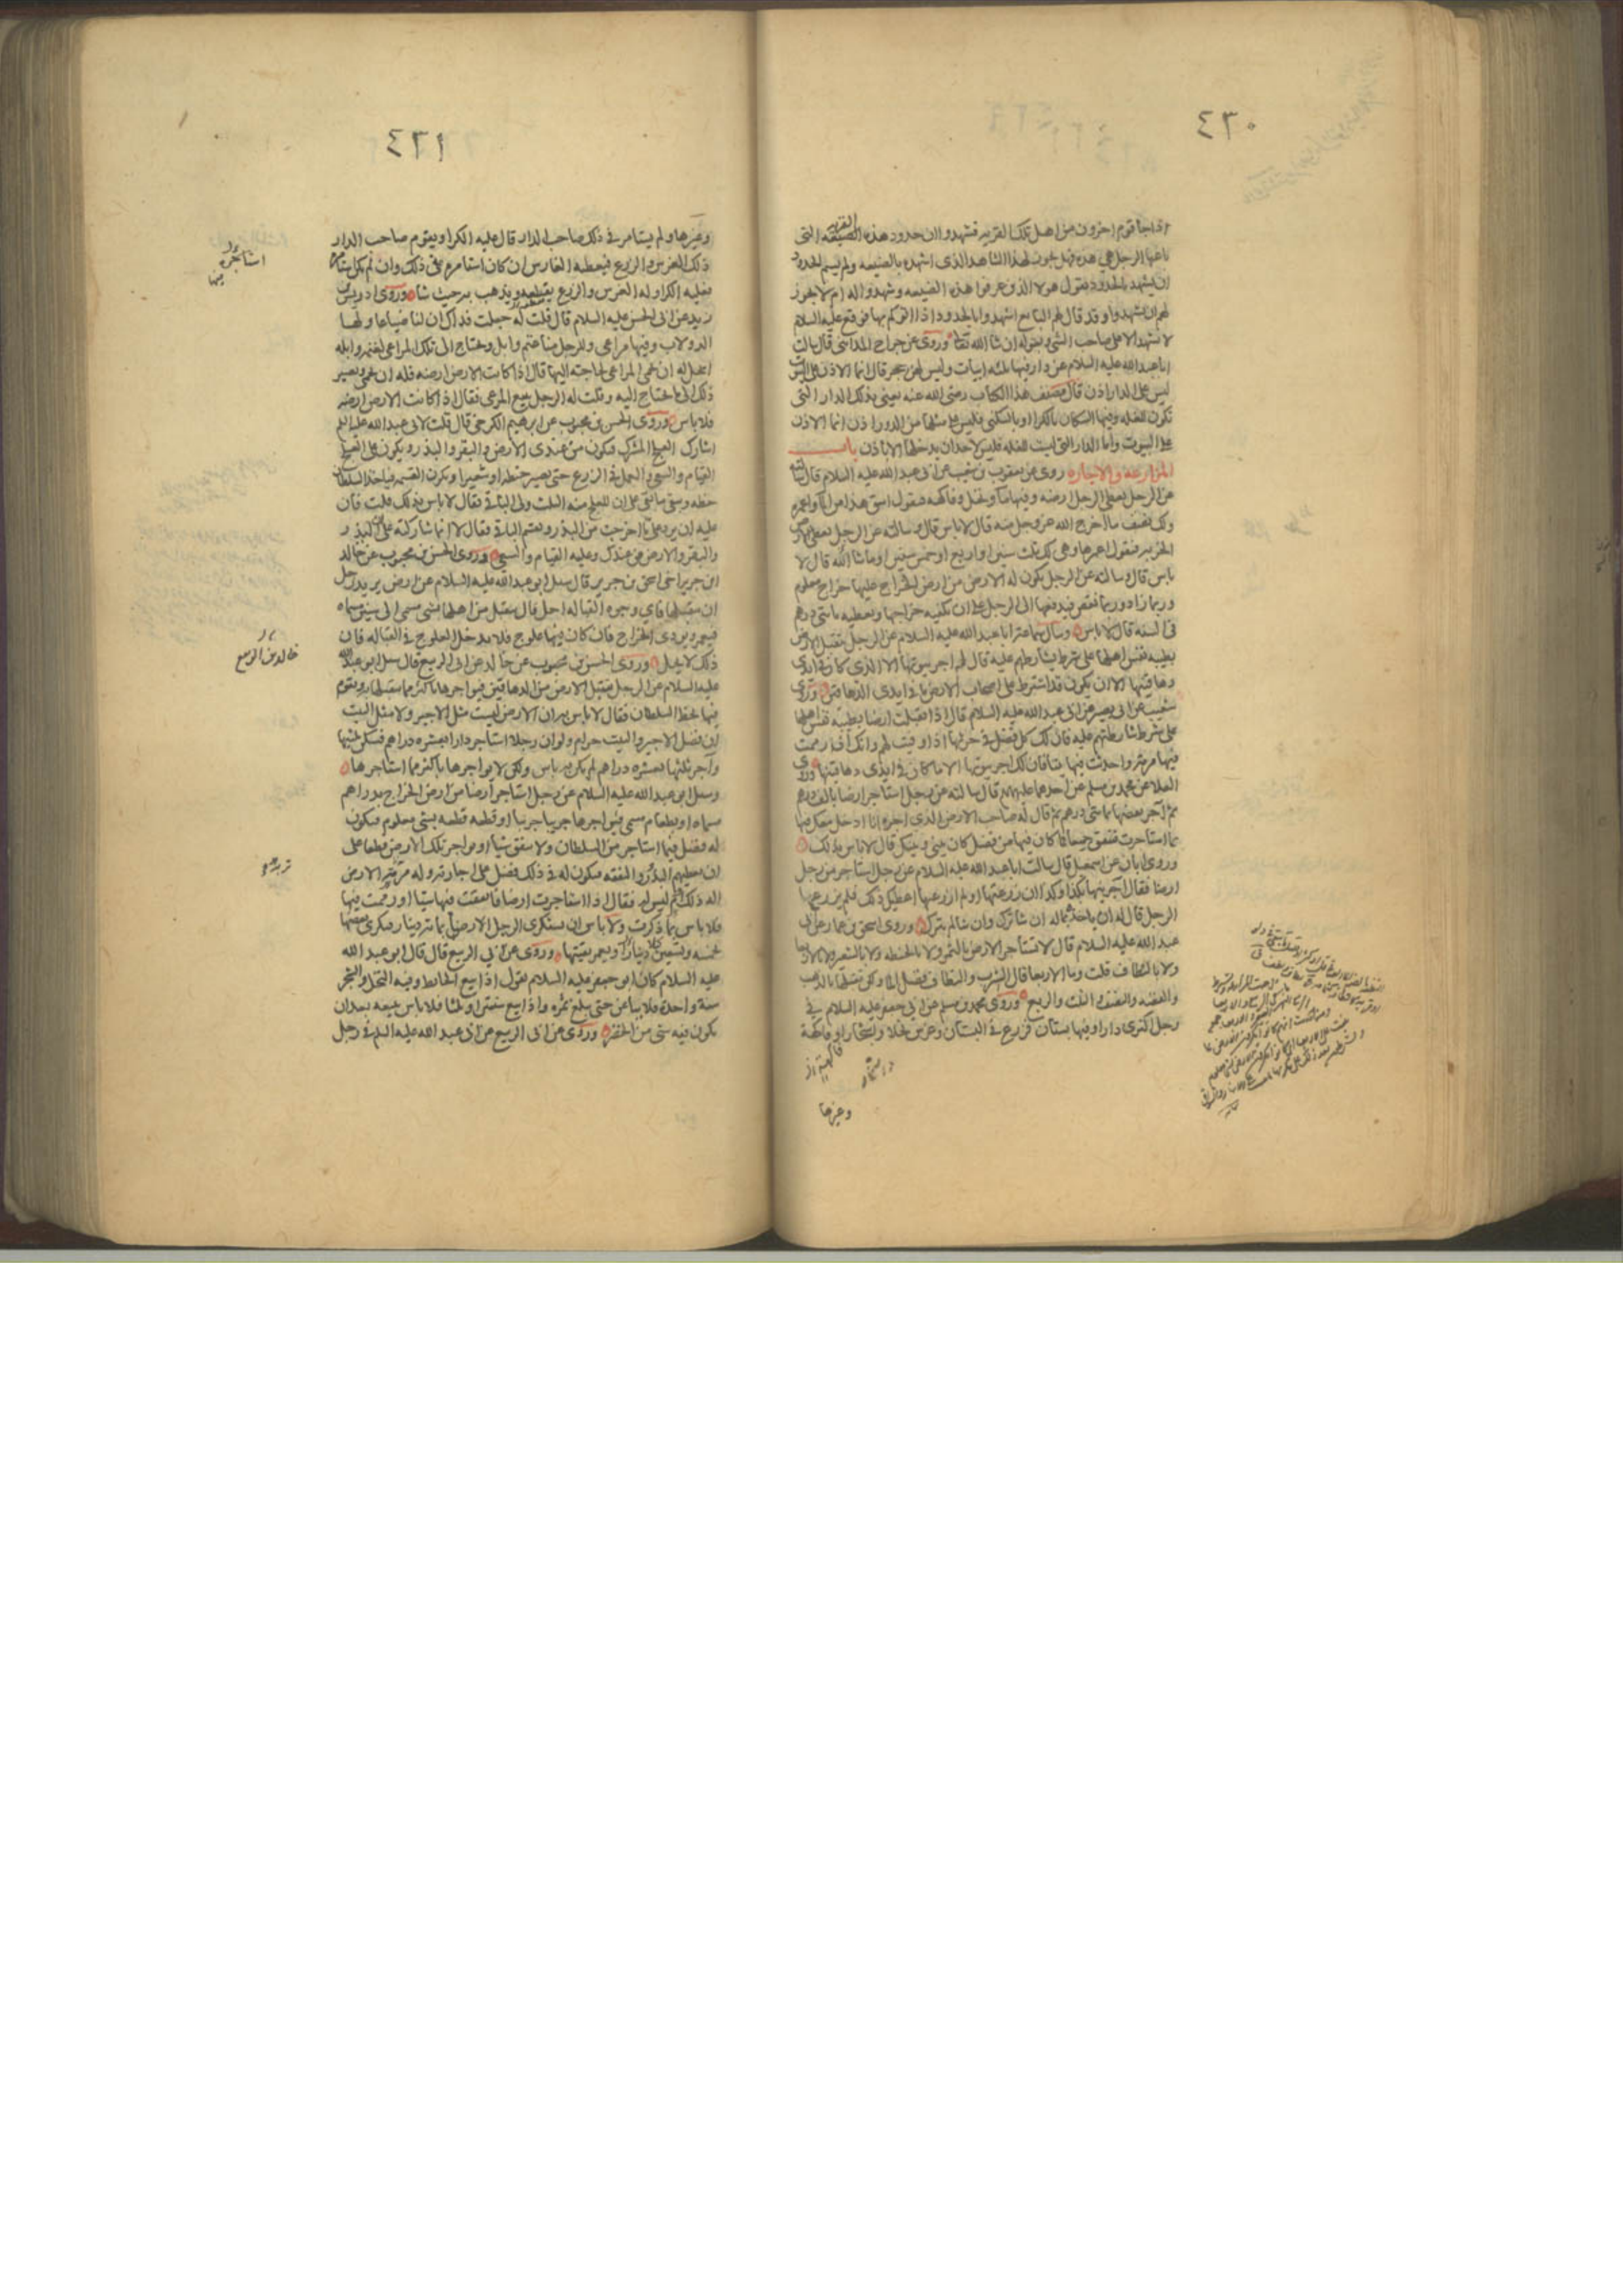 ٤٣٠
اذا جاء قوم اخرون من اهل تلك القريه فشهدوا ان حدود هذه القريه التى
باعها الرجل هى هذه فهل يجوز لهذا الشاهد الذى اشهده بالضيعه ولم يسم الحدود
ان يشهد بالحدود بقول هولا الذين عرفوا هذه الضيعه وشهدوا له ام لا يجوز
لهم ان يشهدوا وقد قال لهم البايع اشهدوا بالحدود اذا اتوكم بها فوقع عليه السلام
لا تشهد الا على صاحب الشى وبقوله ان شا الله تعا وروى عن جراح المداينى قال سالت
ابا عبد الله عليه السلام عن دار فيها ثلثه ابيات وليس لهن حجر قال انما الاذن على البيوت
ليس على الدار اذن قال مصنف هذا الكتاب رضى الله عنه يعنى بذلك الدار التى
تكون للغله وفيها السكان بالكرا او بالسكنى فليس على مثلها من الدور اذن انما الاذن
على البيوت واما الدار التى ليست للغله فليس لاحد ان يدخلها الا باذن باب
المزارعه والاجاره روى عن يعقوب بن شعيب عن ابى عبد الله عليه السلام قال سالته
عن الرجل يعطى الرجل ارضه وفيها ماء ونخل وفاكهه فيقول اسق هذا من الماء واعمره
ولك نصف ما اخرج الله عز وجل منه قال لا باس قال وسالته عن الرجل يعطى الارض
الخربه فيقول اعمرها وهى لك ثلث سنين او اربع او خمس سنين او ما شا الله قال لا
باس قال وسالته عن الرجل يكون له الارض من ارض الخراج عليها خراج معلوم
وربما زاد وربما نقص فيدفعها الى الرجل على ان يكفيه خراجها ويعطيه مائتى درهم
فى السنه قال لا باس وسال سماعه ابا عبد الله عليه السلام عن الرجل يتقبل الارض
بطيبه نفس اهلها على شرط يشارطهم عليه قال له اجر بيوتها الا الذى كان فى ايدى
دهاقينها الا ان يكون قد اشترط على اصحاب الارض ما فى ايدى الدهاقين وروى
شعيب عن ابى بصير عن ابى عبد الله عليه السلام قال اذا تقبلت ارضا بطيبه نفس اهلها
على شرط شارطتهم عليه فان لك كل فضل فى حرثها اذا وفيت لهم وانك ان رممت
فيها مرمه واحدثت فيها بناء فان لك اجر بيوتها الا ما كان فى ايدى دهاقينها وروى
العلا عن محمد بن مسلم عن احدهما عليهما قال سالته عن رجل استاجر ارضا بالف درهم
ثم آجر بعضها بمائتى درهم ثم قال له صاحب الارض الذى اجره انا ادخل معك فيها
بما استاجرت فننفق جميعا فما كان فيها من فضل كان بينى وبينك قال لا باس بذلك
وروى ابان عن اسمعيل قال سالت ابا عبد الله عليه السلام عن رجل استاجر من رجل
ارضا فقال آجرنيها بكذا وكذا ان زرعتها او لم ازرعها اعطيك ذلك فلم يزرعها
الرجل قال له ان ياخذ بماله ان شا ترك وان شا لم يترك وروى اسحق بن عمار عن ابى
عبد الله عليه السلام قال لا تستاجر الارض بالتمر ولا بالحنطه ولا بالشعير ولا بالاربعا
ولا بالنطاف قلت وما الاربعا قال الشرب والنطاف فضل الماء ولكن تقبلها بالذهب
والفضه والنصف والثلث والربع وروى محمد بن مسلم عن ابى جعفر عليه السلام فى
رجل اكترى دارا وفيها بستان فزرع فى البستان وغرس نخلا واشجارا وفاكهة
وغيرها
٤٣١
وغيرها ولم يستامر فى ذلك صاحب الدار قال عليه الكرا ويقوم صاحب الدار
ذلك الغرس والزرع فيعطيه الغارس ان كان استامره فى ذلك وان لم يكن استامره
فعليه الكرا وله الغرس والزرع يقلعه ويذهب به حيث شا وروى ادريس بن
زيد عن ابى الحسن عليه السلام قال قلت له جعلت فداك ان لنا ضياعا ولها
الدولاب وفيها مراعى وللرجل منا غنم وابل ويحتاج الى تلك المراعى لغنمه وابله
ايحل له ان يحمى المراعى لحاجته اليها قال اذا كانت الارض ارضه فله ان يحمى ويصير
ذلك الى ما يحتاج اليه وقلت له الرجل يبيع المرعى فقال اذا كانت الارض ارضه
فلا باس وروى الحسن بن محبوب عن ابرهيم الكرخى قال قلت لابى عبد الله عليه السلم
اشارك العلج المشرك فيكون من عندى الارض والبقر والبذر ويكون على العلج
القيام والسقى والعمل فى الزرع حتى يصير حنطه او شعيرا وتكون القسمه فياخذ السلطان
حظه ويبقى ما بقى على ان للعلج منه الثلث ولى الباقى فقال لا باس بذلك قلت فان
عليه ان يرد على ما اخرجت من البذر ويقسم الباقى فقال لا انما شاركته على ان البذر
والبقر والارض من عندك وعليه القيام والسقى وروى الحسن بن محبوب عن خالد
ابن جرير اخى اسحق بن جرير قال سئل ابو عبد الله عليه السلام عن ارض يريد رجل
ان يتقبلها فاى وجوه القباله احل قال يتقبل من اهلها بشى مسمى الى سنين مسماه
فيعمر ويودى الخراج فان كان فيها علوج فلا يدخل العلوج فى القباله فان
ذلك لا يحل وروى الحسن بن محبوب عن خالد عن ابى الربيع قال سئل ابو عبد الله
عليه السلام عن الرجل يتقبل الارض من الدهاقين فيواجرها باكثر مما يتقبلها ويقوم
فيها بحظ السلطان فقال لا باس به ان الارض ليست مثل الاجير ولا مثل البيت
ان فضل الاجير والبيت حرام ولو ان رجلا استاجر دارا بعشره دراهم فسكن ثلثيها
وآجر ثلثها بعشره دراهم لم يكن به باس ولكن لا يواجرها باكثر مما استاجرها
وسئل ابو عبد الله عليه السلام عن رجل استاجر ارضا من ارض الخراج بدراهم
مسماه او بطعام مسمى فيواجرها جريبا جريبا او قطعه قطعه بشى معلوم فيكون
له فضل فيما استاجر من السلطان ولا ينفق شيئا او يواجر تلك الارض قطعا على
ان يعطيهم البذر والنفقه فيكون له فى ذلك فضل على اجارته وله تربه الارض
اله ذلك ام ليس له فقال اذا استاجرت ارضا فانفقت فيها شيئا او رممت فيها
فلا باس بما ذكرت ولا باس ان يستكرى الرجل الارض بمائه دينار فيكرى بعضها
بخمسه وتسعين دينارا ويعمر بقيتها وروى عن ابى الربيع قال قال ابو عبد الله
عليه السلام كان ابو جعفر عليه السلام يقول اذا بيع الحائط وفيه النخل والشجر
سنة واحدة فلا يباعن حتى يبلغ ثمره واذا بيع سنتين او ثلثا فلا باس ببيعه بعد ان
يكون فيه شى من الخضر وروى عن ابى الربيع عن ابى عبد الله عليه السلم فى رجل
استاجره
منها
خالد بن الربيع
تربه